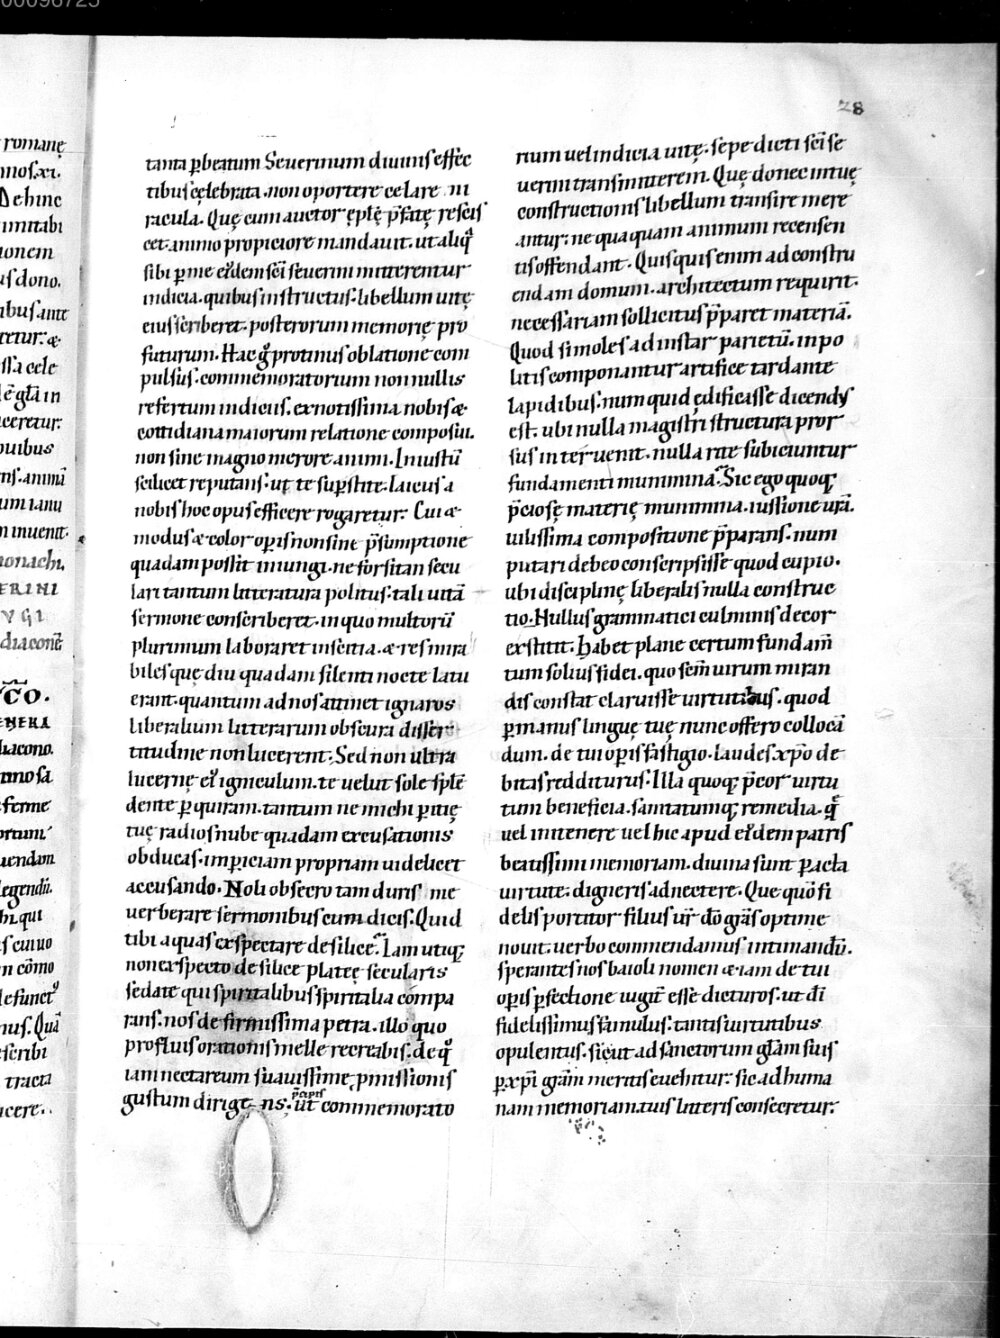 00096725
28
romanę
nos.xi.
Dehinc
imitabi
ionem
us dono.
ibus ante
retur. æ
ssa cele
dē gl̄a in
ceretur.
ouibus
ns. animū
um ianu
n inuenit.
onachi.
ERINI
VGI
diaconē
C̄O.
ENERA
diacono.
nno sa
ferme
ortuni
uendam
legendū.
hi qui
s cuiuo
n cōmo
defunct᷒
nus. Quā
scribi
tracta
cere.
tanta p̱ beatum Seuerinum diuinis effec
tibus cęlebrata. non oportere celare mi
racula. Quę cum auctor ępl̄ę p̄fatę rescis
cet. animo propiciore mandauit. ut aliq̄
sibi p̱ me eıdem sc̄i seuerini mitterentur
indicia. quibus instructus. libellum uitę
eius scriberet. posterorum memorię pro
futurum. Hac g̊ protinus oblatione com
pulsus. commemoratorium non nullis
refertum indiciis. ex notissima nobis æ
cottidiana maiorum relatione composui.
non sine magno merore animi. Iniustū
scilicet reputans. ut te sup̱stite. laicus a
nobis hoc opus efficere rogaretur. Cui æ
modus æ color op̱is non sine p̄sumptione
quadam possit iniungi. ne forsitan secu
lari tantum litteratura politus. tali uitā
sermone conscriberet. in quo multorū
plurimum laboraret inscitia. æ res mira
biles quę diu quadam silentii nocte latu
erant. quantum ad nos attinet ignaros
liberalium litterarum obscura disser
titudine non lucerent. Sed non ultra
lucernę eı᷒ igniculum. te uelut sole splē
dente p̱quiram. tantum ne michi p̱itię
tuę radios nube quadam excusationis
obducas. imp̱iciam propriam uidelicet
accusando. Noli obsecro tam duris me
uerberare sermonibus cum dicis. Quid
tibi aquas expectare de silice. Iam utiq;
non expecto de silice plateę secularis
sed a te qui spiritalibus spiritalia compa
rans. nos de firmissima petra. illo quo
profluis orationis melle recreabis. de q̊
iam nectareum suauissime, pmissionis
gustum dirige ns. p̄cipis ut commemorato
rium uel indicia uitę. sepe dicti sc̄i se
uerini transmitterem. Quę donec in tuę
constructionis libellum transire mere
antur. ne quaquam animum recensen
tis offendant. Quisquis enim ad constru
endam domum. architectum requirit.
necessariam sollicitus p̄paret materiā.
Quod si moles ad instar parietū. inpo
litis componantur artifice tardante
lapidibus. num quid edificasse dicend᷒
est. ubi nulla magistri structura pror
sus interuenit. nulla rite subiciuntur
fundamenti munimina. Sic ego quoq;
p̄ciosę materię munimina. iussione urā.
uilissima compositione p̄parans. num
putari debeo conscripsisse quod cupio.
ubi disciplinę liberalis nulla construc
tio. Nullus grammatici culminis decor
exstitit. Habet plane certum fundam̄
tum solius fidei. quo sc̄m uirum miran
dis constat claruisse uirtutibus. quod
p̱ manus linguę tuę nunc offero collocā
dum. de tui op̱is fastigio. laudes xp̄o de
bitas redditurus. Illa quoq; p̄cor uirtu
tum beneficia. sanitatumq; remedia. q̄
uel in itenere uel hic apud eıdem patris
beatissimi memoriam. diuina sunt p̱acta
uirtute. digneris adnectere. Que quō fi
delis portitor filius ur̄ dō grās optime
nouit. uerbo commendamus intimandū.
sperantes nos baioli nomen æ iam de tui
op̱is p̱fectione iugit᷒ esse dicturos. ut d̄i
fidelissimus famulus. tantis uirtutibus
opulentus. sicut ad sanctorum gl̄am suis
p̱ xp̄i grām meritis euehitur. sic ad huma
nam memoriam. tuis litteris consecretur.